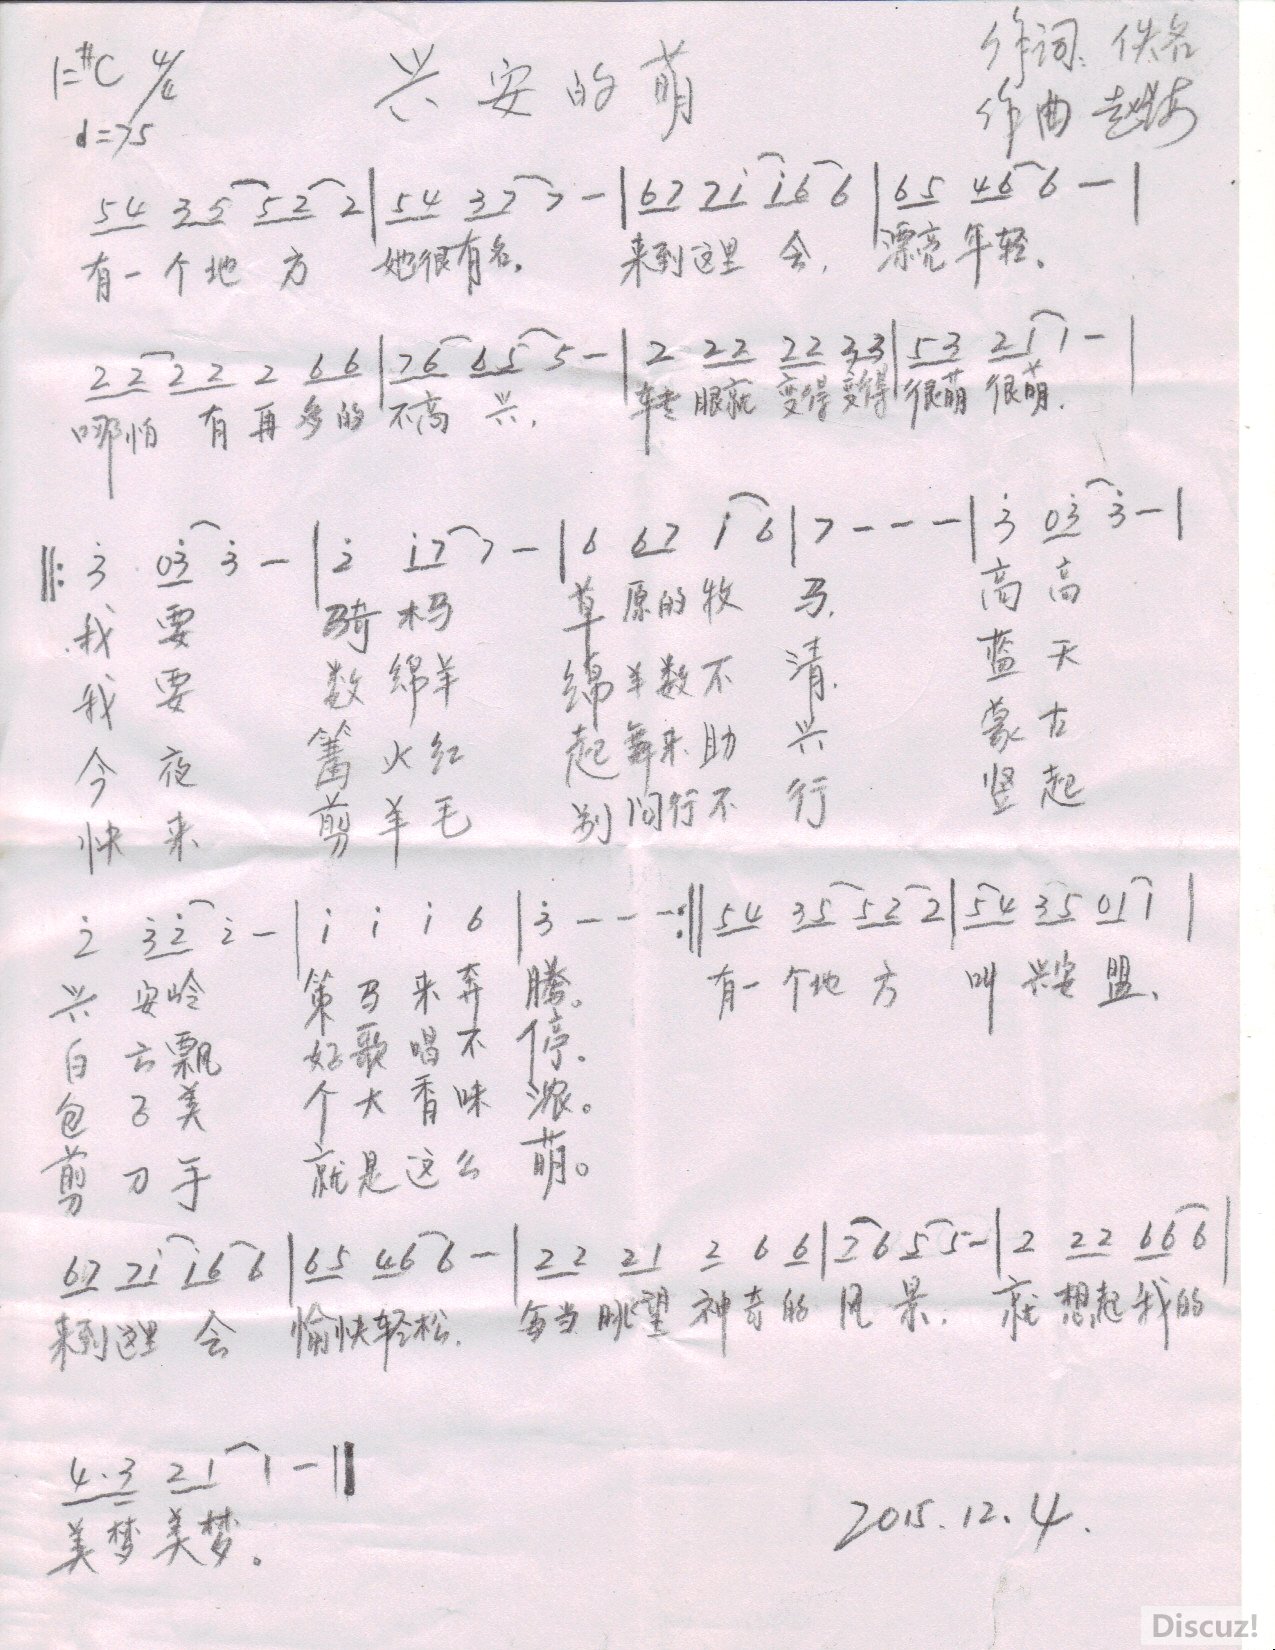 1=#C 4/4 兴安的萌 作词:佚名
♩=75 作曲 赵海
54 35 52 2 | 54 37 7 - | 67 71̇ 1̇6 6 | 65 46 6 - |
有一个地方 她很有名。 来到这里会, 漂亮年轻。
22 22 2 66 | 76 65 5 - | 2 22 22 33 | 53 21 1 - |
哪怕有再多的不高兴, 转眼就变得变得很萌很萌.
‖: 3̇ 03̇ 3̇ - | 2̇ 1̇7 7 - | 6 67 1̇ 6 | 7 - - - | 3̇ 03̇ 3̇ - |
我要 骑木马 草原的牧马. 高高
我要 数绵羊 绵羊数不清. 蓝天
今夜 篝火红 起舞来助兴 蒙古
快来 剪羊毛 别问行不行 竖起
2̇ 3̇2̇ 2̇ - | 1̇ 1̇ 1̇ 6 | 3̇ - - - :‖ 54 35 52 2 | 54 35 01 1 |
兴安岭 策马来奔腾。 有一个地方 叫兴安盟、
白云飘 好歌唱不停.
包子美 个大香味浓。
剪刀手 就是这么萌。
67 71̇ 1̇6 6 | 65 46 6 - | 22 21 2 6 6 | 76 55 5 - | 2 22 66 6 |
来到这里会 愉快轻松. 每当眺望神奇的风景. 就想起我的
4·3 21 1 - ‖
美梦美梦。
2015.12.4.
Discuz!